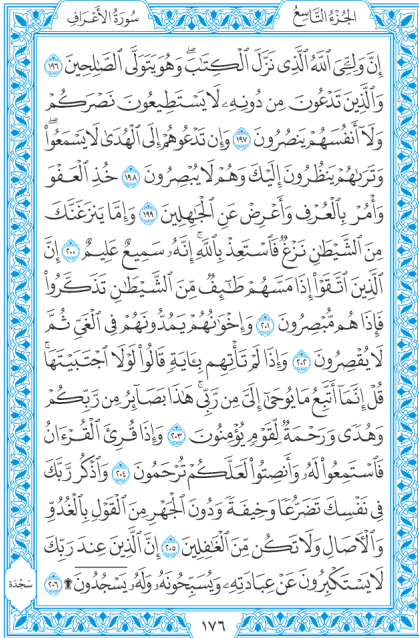 الجُزْءُ التَّاسِعُ
سُورَةُ الأَعْرَافِ
إِنَّ وَلِـِّۧيَ ٱللَّهُ ٱلَّذِي نَزَّلَ ٱلۡكِتَٰبَۖ وَهُوَ يَتَوَلَّى ٱلصَّٰلِحِينَ ١٩٦
وَٱلَّذِينَ تَدۡعُونَ مِن دُونِهِۦ لَا يَسۡتَطِيعُونَ نَصۡرَكُمۡ
وَلَآ أَنفُسَهُمۡ يَنصُرُونَ ١٩٧ وَإِن تَدۡعُوهُمۡ إِلَى ٱلۡهُدَىٰ لَا يَسۡمَعُواْۖ
وَتَرَىٰهُمۡ يَنظُرُونَ إِلَيۡكَ وَهُمۡ لَا يُبۡصِرُونَ ١٩٨ خُذِ ٱلۡعَفۡوَ
وَأۡمُرۡ بِٱلۡعُرۡفِ وَأَعۡرِضۡ عَنِ ٱلۡجَٰهِلِينَ ١٩٩ وَإِمَّا يَنزَغَنَّكَ
مِنَ ٱلشَّيۡطَٰنِ نَزۡغٞ فَٱسۡتَعِذۡ بِٱللَّهِۚ إِنَّهُۥ سَمِيعٌ عَلِيمٌ ٢٠٠ إِنَّ
ٱلَّذِينَ ٱتَّقَوۡاْ إِذَا مَسَّهُمۡ طَٰٓئِفٞ مِّنَ ٱلشَّيۡطَٰنِ تَذَكَّرُواْ
فَإِذَا هُم مُّبۡصِرُونَ ٢٠١ وَإِخۡوَٰنُهُمۡ يَمُدُّونَهُمۡ فِي ٱلۡغَيِّ ثُمَّ
لَا يُقۡصِرُونَ ٢٠٢ وَإِذَا لَمۡ تَأۡتِهِم بِـَٔايَةٖ قَالُواْ لَوۡلَا ٱجۡتَبَيۡتَهَاۚ
قُلۡ إِنَّمَآ أَتَّبِعُ مَا يُوحَىٰٓ إِلَيَّ مِن رَّبِّيۚ هَٰذَا بَصَآئِرُ مِن رَّبِّكُمۡ
وَهُدٗى وَرَحۡمَةٞ لِّقَوۡمٖ يُؤۡمِنُونَ ٢٠٣ وَإِذَا قُرِئَ ٱلۡقُرۡءَانُ
فَٱسۡتَمِعُواْ لَهُۥ وَأَنصِتُواْ لَعَلَّكُمۡ تُرۡحَمُونَ ٢٠٤ وَٱذۡكُر رَّبَّكَ
فِي نَفۡسِكَ تَضَرُّعٗا وَخِيفَةٗ وَدُونَ ٱلۡجَهۡرِ مِنَ ٱلۡقَوۡلِ بِٱلۡغُدُوِّ
وَٱلۡأٓصَالِ وَلَا تَكُن مِّنَ ٱلۡغَٰفِلِينَ ٢٠٥ إِنَّ ٱلَّذِينَ عِندَ رَبِّكَ
لَا يَسۡتَكۡبِرُونَ عَنۡ عِبَادَتِهِۦ وَيُسَبِّحُونَهُۥ وَلَهُۥ يَسۡجُدُونَ۩ ٢٠٦
سَجْدَة
١٧٦